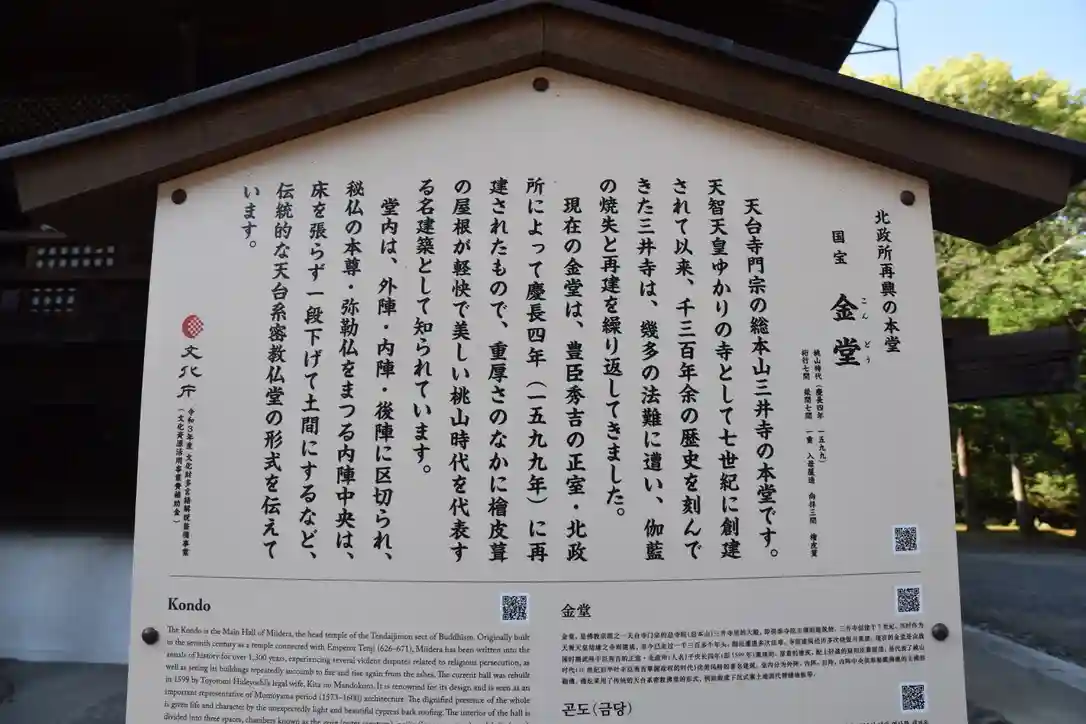 北政所再興の本堂
国宝 金堂
こん どう
桃山時代（慶長四年 一五九九）
桁行七間 梁間七間 一重 入母屋造 向拝三間 檜皮葺
天台寺門宗の総本山三井寺の本堂です。
天智天皇ゆかりの寺として七世紀に創建
されて以来、千三百年余の歴史を刻んで
きた三井寺は、幾多の法難に遭い、伽藍
の焼失と再建を繰り返してきました。
現在の金堂は、豊臣秀吉の正室・北政
所によって慶長四年（一五九九年）に再
建されたもので、重厚さのなかに檜皮葺
の屋根が軽快で美しい桃山時代を代表す
る名建築として知られています。
堂内は、外陣・内陣・後陣に区切られ、
秘仏の本尊・弥勒仏をまつる内陣中央は、
床を張らず一段下げて土間にするなど、
伝統的な天台系密教仏堂の形式を伝えて
います。
文化庁
令和3年度 文化財多言語解説整備事業
（文化資源活用事業費補助金）
Kondo
The Kondo is the Main Hall of Miidera, the head temple of the Tendaijimon sect of Buddhism. Originally built
to the seventh century as a temple connected with Emperor Tenji (626–671), Miidera has been written into the
annals of history for over 1,300 years, experiencing several violent disputes related to religious persecution, as
well as seeing its buildings repeatedly succumb to fire and rise again from the ashes. The current hall was rebuilt
in 1599 by Toyotomi Hideyoshi's legal wife, Kita no Mandokoro. It is renowned for its design, and is seen as an
important representative of Momoyama period (1573–1600) architecture. The dignified presence of the whole
is given life and character by the unexpectedly light and beautiful cypress bark roofing. The interior of the hall is
divided into three spaces, chambers known as the
金堂
곤도(금당)